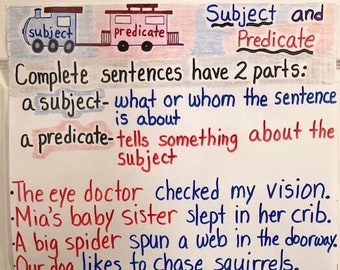 Subject and
Predicate
subject
predicate
Complete sentences have 2 parts:
a subject- what or whom the sentence
is about
a predicate- tells something about the
subject
·The eye doctor checked my vision.
·Mia's baby sister slept in her crib.
·A big spider spun a web in the doorway.
·Our dog likes to chase squirrels.